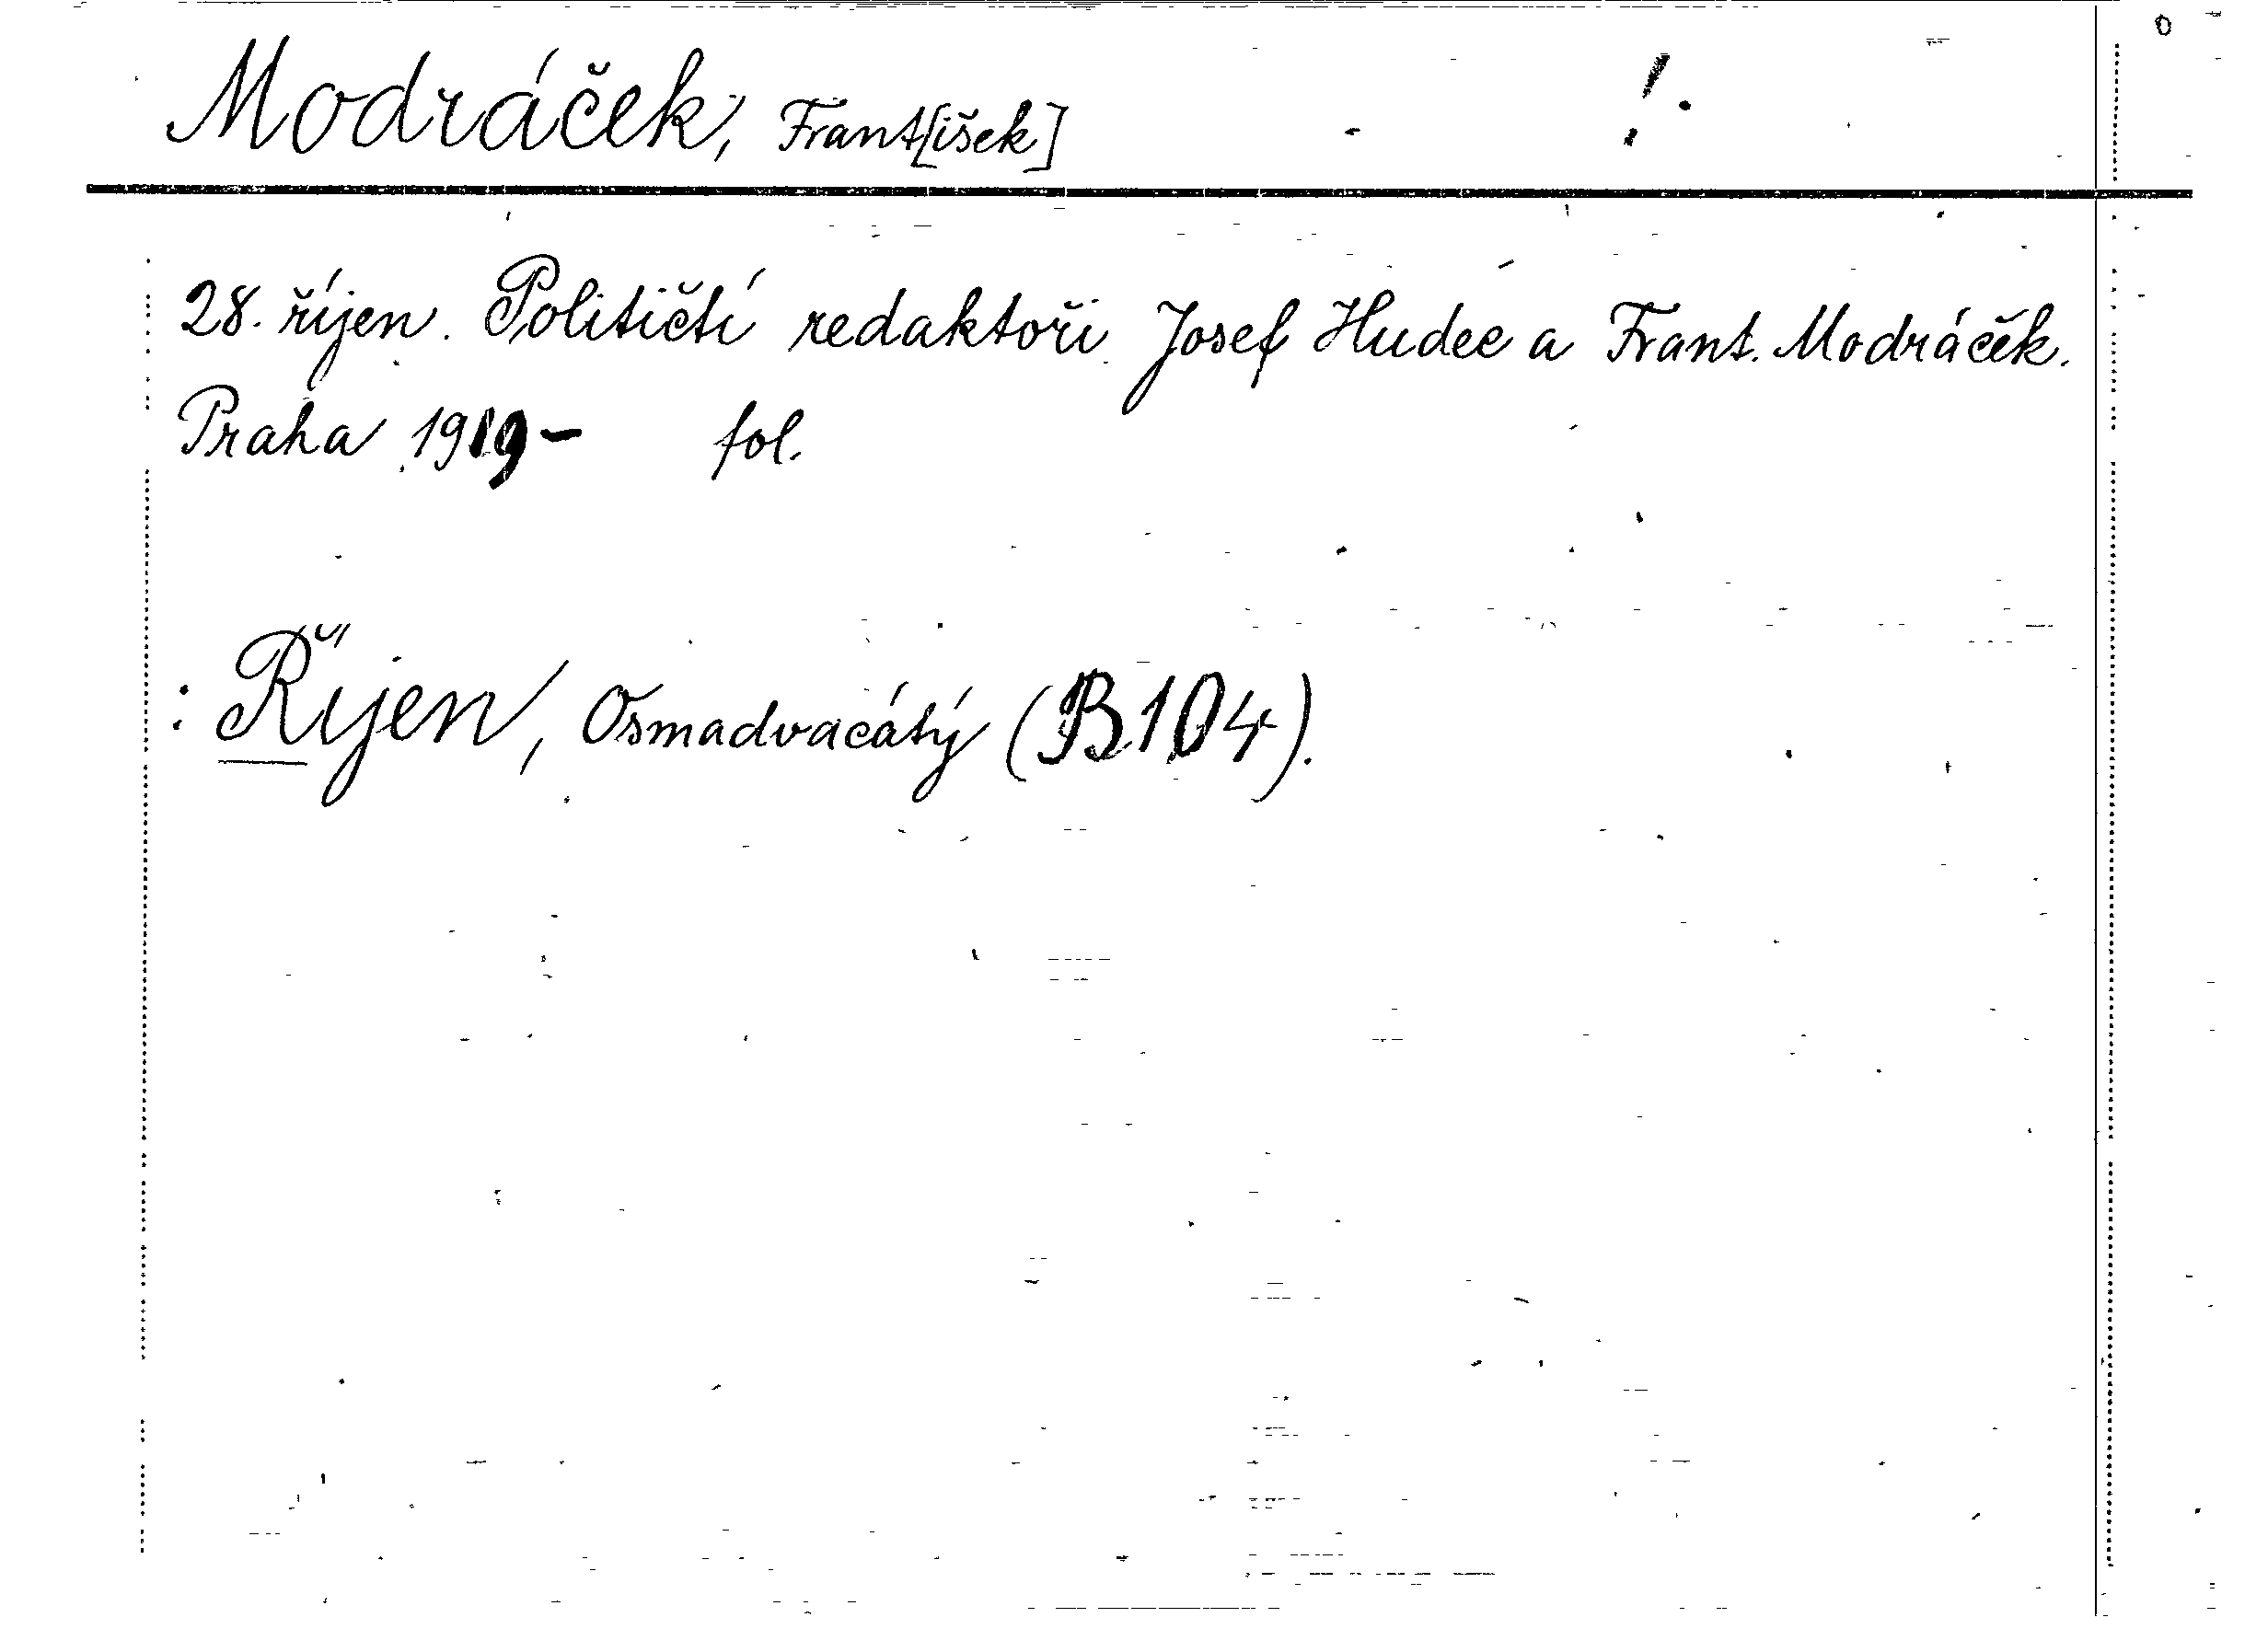 Modráček, Frant[išek] !.
28. říjen. Političtí redaktoři Josef Hudec a Frant. Modráček.
Praha 1919- fol.
: Říjen, Osmadvacátý (B 104).